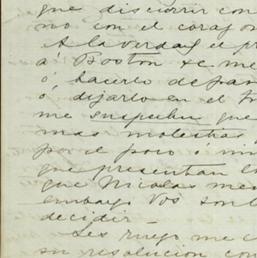 que discurrir con
no con el corazon
A la verdad el pr
á Boston se me
ó hacerlo de pa
ó dejarlo en el
me
mas molestias
por el poco ó
que presentan
que Nicolas me
embargo Vos son
decidir
Les ruego me
su resolucion con